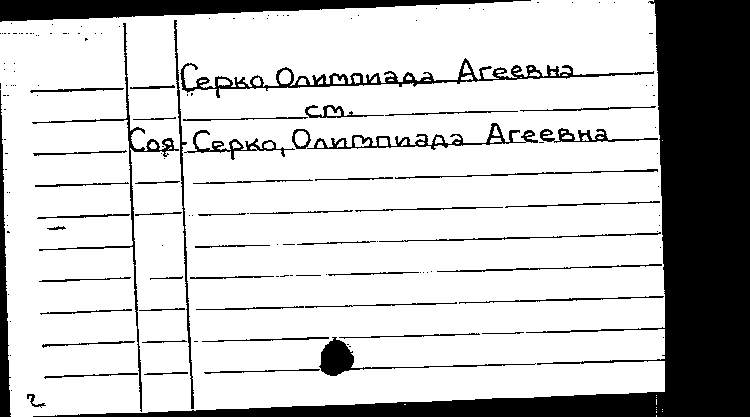 Серко, Олимпиада Агеевна
ст.
Соя-Серко, Олимпиада Агеевна
2